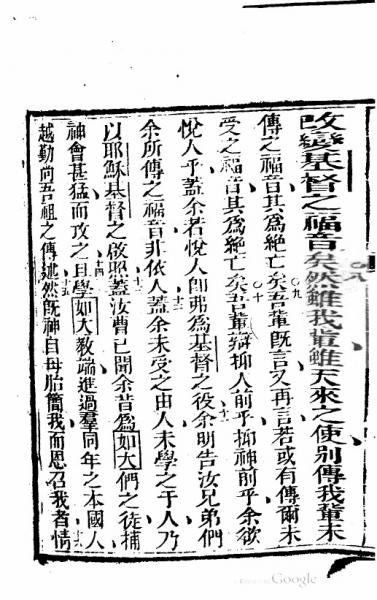 改變基督之福音矣八然雖我輩雖天來之使別傳我輩未
傳之福音其為絕亡矣九吾輩既言又再言若或有傳爾未
受之福音其為絕亡矣十吾輩辯抑人前乎抑神前乎余欲
悅人乎蓋余若悅人卽弗為基督之役十一余明告汝兄弟們
余所傳之福音非依人十二蓋余未受之由人未學之于人乃
以耶穌基督之啟照十三蓋汝曹已聞余昔為如大們之徒捕
神會甚猛而攻之十四且學如大教端進過羣同年之本國人
越勤尚吾祖之傳述十五然既神自母胎簡我而恩召我者十六情
Google